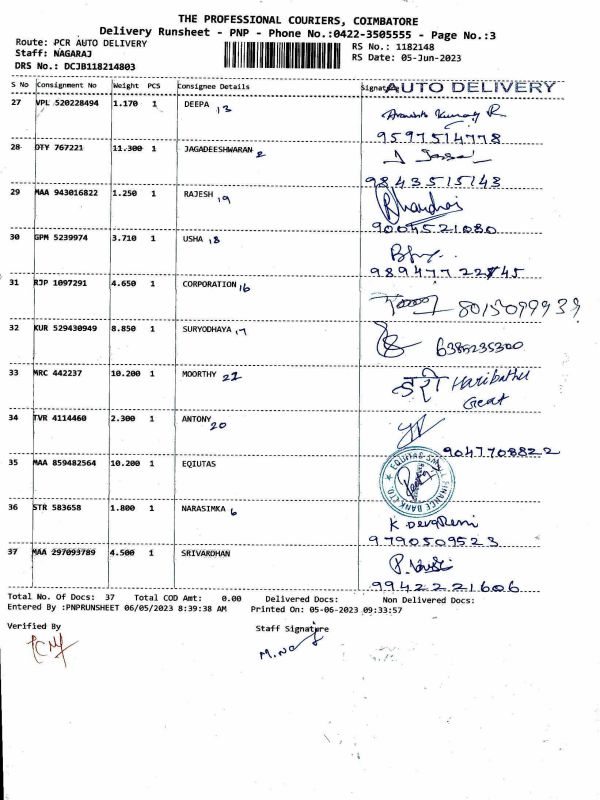 THE PROFESSIONAL COURIERS, COIMBATORE
Delivery Runsheet - PNP - Phone No.:0422-3505555 - Page No.:3
Route: PCR AUTO DELIVERY RS No.: 1182148
Staff: NAGARAJ RS Date: 05-Jun-2023
DRS No.: DCJB118214803
S No Consignment No Weight PCS Consignee Details Signature AUTO DELIVERY
27 VPL 520228494 1.170 1 DEEPA 13 Kumar R
9597514778
28 DTY 767221 11.300 1 JAGADEESHWARAN 2
9843515143
29 MAA 943016822 1.250 1 RAJESH 19
9004521080
30 GPM 5239974 3.710 1 USHA 18
31 RJP 1097291 4.650 1 CORPORATION 16 8015099939
32 KUR 529430949 8.850 1 SURYODHAYA 17
6385235300
33 MRC 442237 10.200 1 MOORTHY 22
34 TVR 4114460 2.300 1 ANTONY 20
9047708822
35 MAA 859482564 10.200 1 EQIUTAS
EQUITAS SMALL FINANCE BANK LTD.
36 STR 583658 1.800 1 NARASIMKA 6
9790509523
37 MAA 297093789 4.500 1 SRIVARDHAN
9942221606
Total No. Of Docs: 37 Total COD Amt: 0.00 Delivered Docs: Non Delivered Docs:
Entered By :PNPRUNSHEET 06/05/2023 8:39:38 AM Printed On: 05-06-2023 09:33:57
Verified By Staff Signature